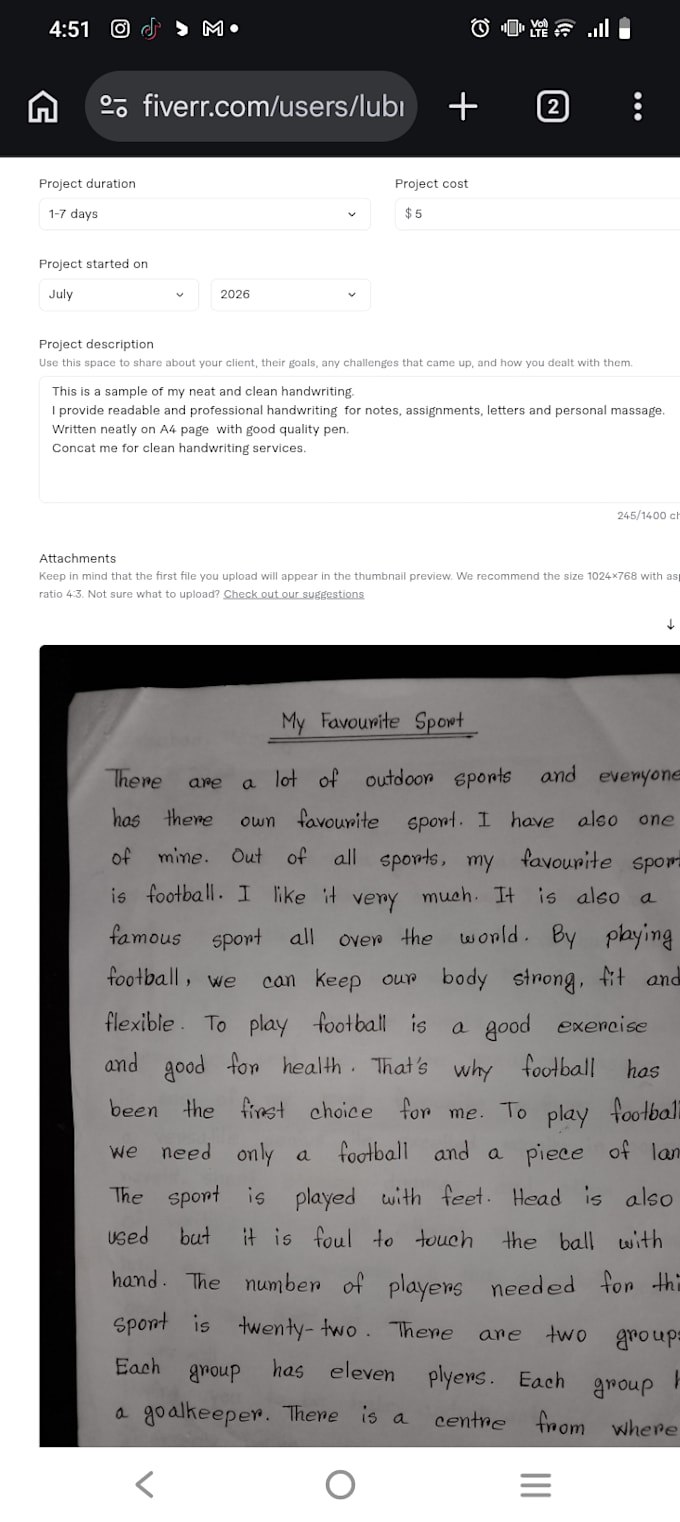 4:51
Vo)
LTE
fiverr.com/users/lubi
2
Project duration
Project cost
1-7 days
$ 5
Project started on
July
2026
Project description
Use this space to share about your client, their goals, any challenges that came up, and how you dealt with them.
This is a sample of my neat and clean handwriting.
I provide readable and professional handwriting for notes, assignments, letters and personal massage.
Written neatly on A4 page with good quality pen.
Concat me for clean handwriting services.
245/1400 ch
Attachments
Keep in mind that the first file you upload will appear in the thumbnail preview. We recommend the size 1024×768 with asp
ratio 4:3. Not sure what to upload? Check out our suggestions
My Favourite Sport
There are a lot of outdoor sports and everyone
has there own favourite sport. I have also one
of mine. Out of all sports, my favourite sport
is football. I like it very much. It is also a
famous sport all over the world. By playing
football, we can keep our body strong, fit and
flexible. To play football is a good exercise
and good for health. That's why football has
been the first choice for me. To play football
we need only a football and a piece of lan
The sport is played with feet. Head is also
used but it is foul to touch the ball with
hand. The number of players needed for thi
sport is twenty-two. There are two groups
Each group has eleven plyers. Each group h
a goalkeeper. There is a centre from where